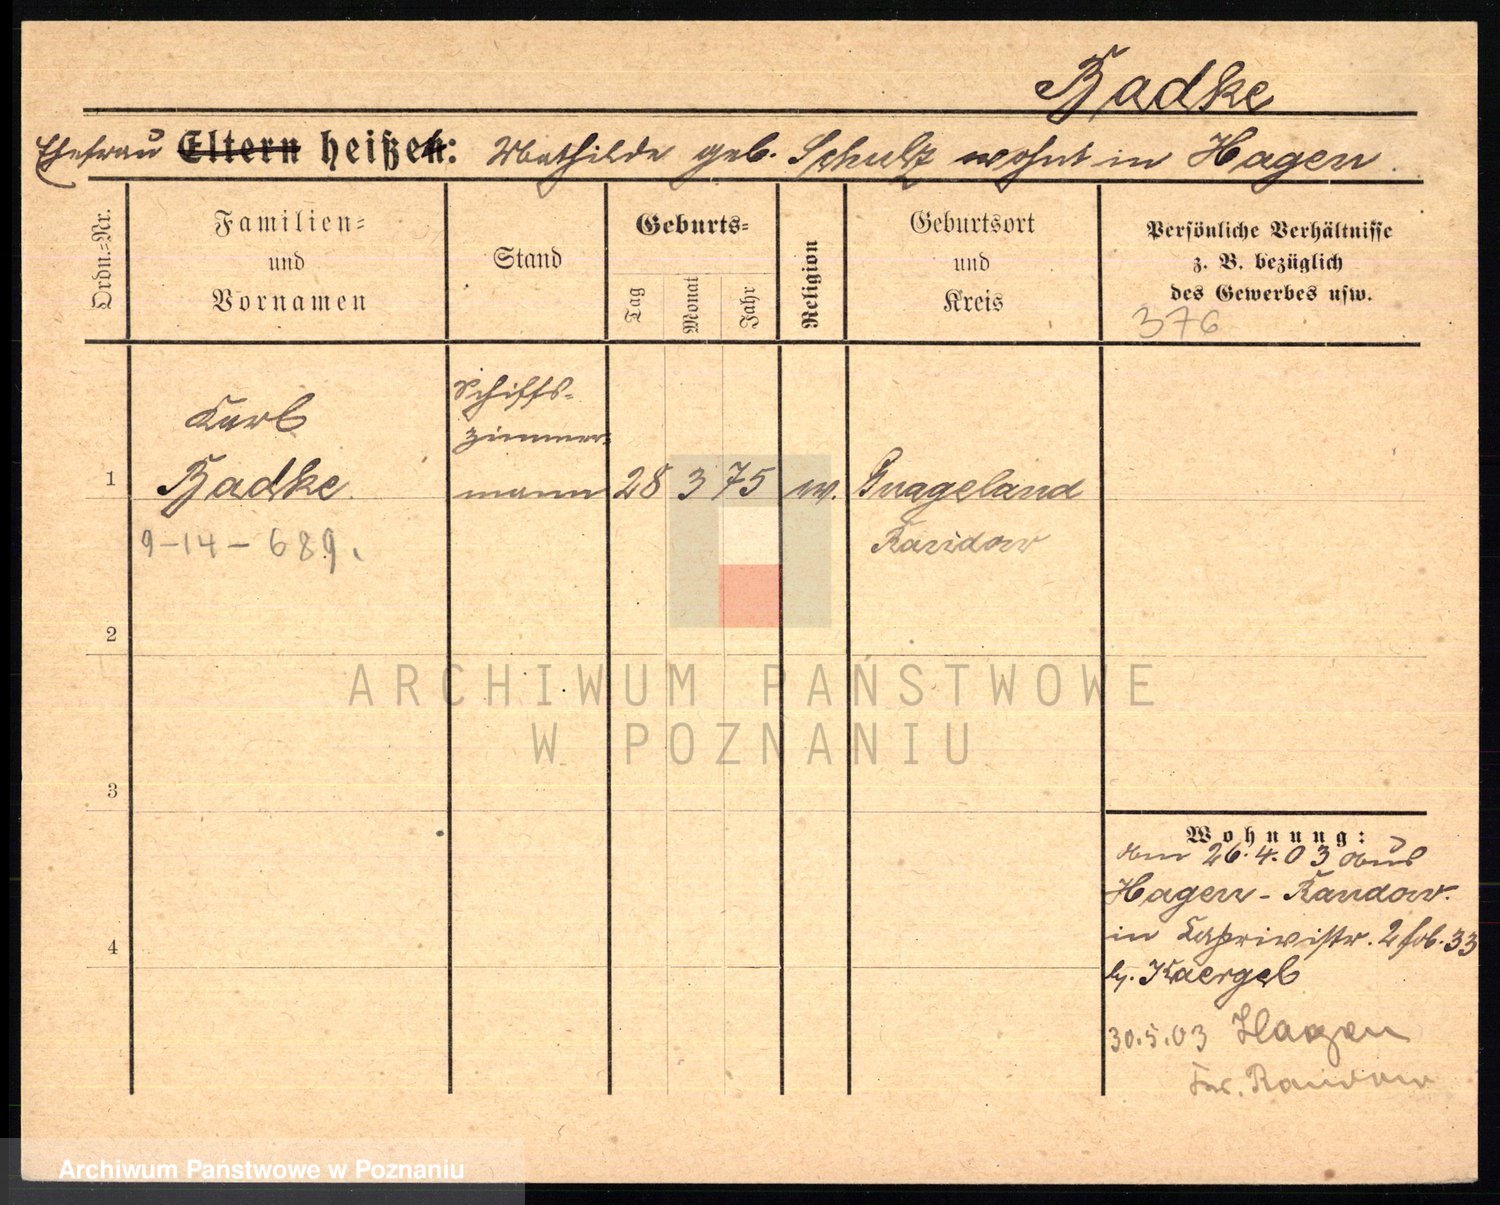 Radke
Ehefrau Eltern heißen: Mathilde geb. Schulz wohnt in Hagen
Ordn.-Nr.
Familien-
und
Vornamen
Stand
Geburts-
Tag
Monat
Jahr
Religion
Geburtsort
und
Kreis
Persönliche Verhältnisse
z. B. bezüglich
des Gewerbes usw.
376
Karl
Schiffs-
zimmer-
1 Radke mann 28 3 75 ev.
9-14-689.
Randow
2
ARCHIWUM PAŃSTWOWE
W POZNANIU
3
Wohnung:
am 26.4.03 aus
Hagen-Randow.
in Caprivistr. 33
b. Kaergel
4
30.5.03 Hagen
Randow
Archiwum Państwowe w Poznaniu